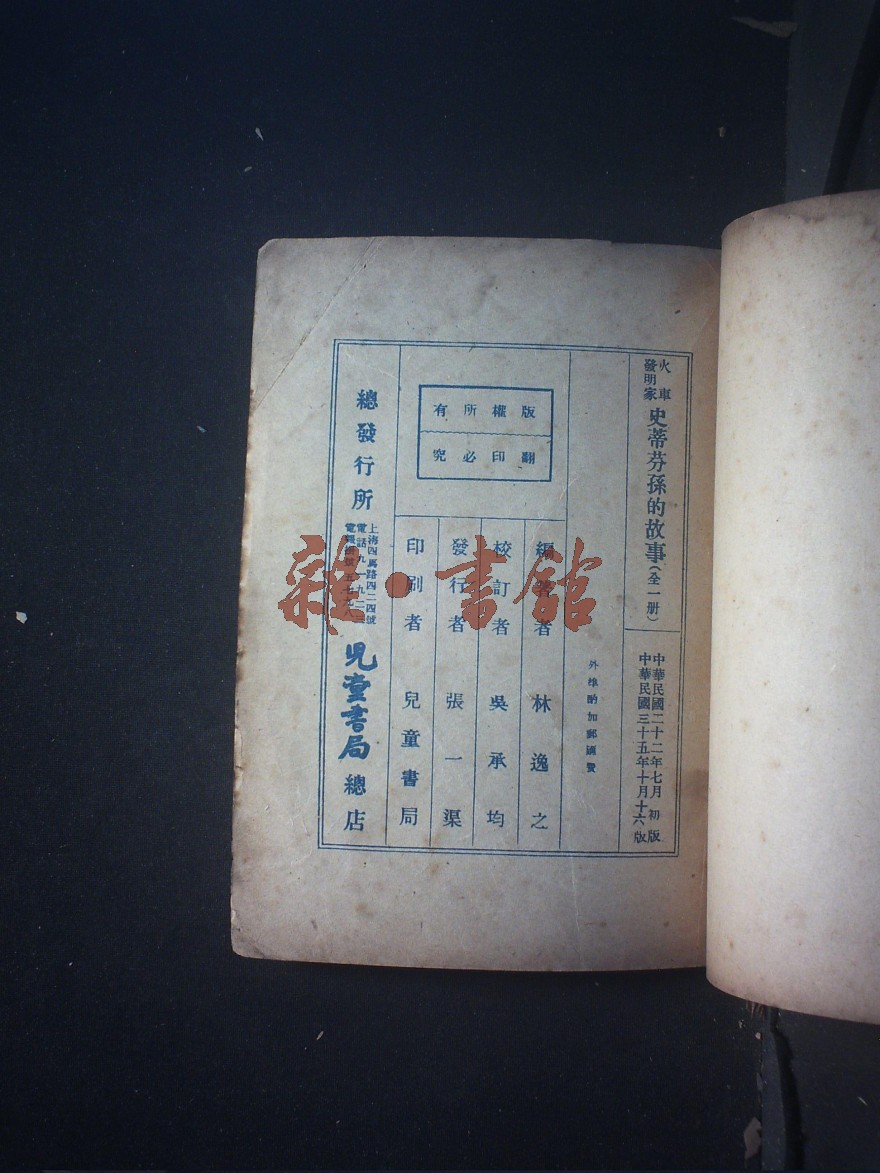 火車
發明家
史蒂芬孫的故事(全一册)
中華民國二十二年七月初版
中華民國三十五年十月十六版
外埠酌加郵滙費
版權所有
翻印必究
編著者 林逸之
校訂者 吳承均
發行者 張一渠
印刷者 兒童書局
總發行所
上海四馬路四二四號
兒童書局
總店
雜·書館